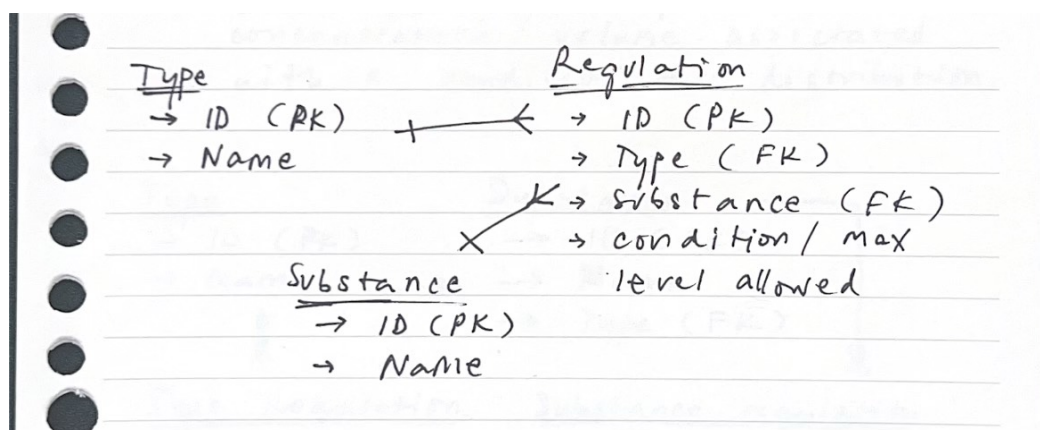 Type
→ ID (PK)
→ Name
Regulation
→ ID (PK)
→ Type (FK)
→ Substance (FK)
→ condition / max
level allowed
Substance
→ ID (PK)
→ Name